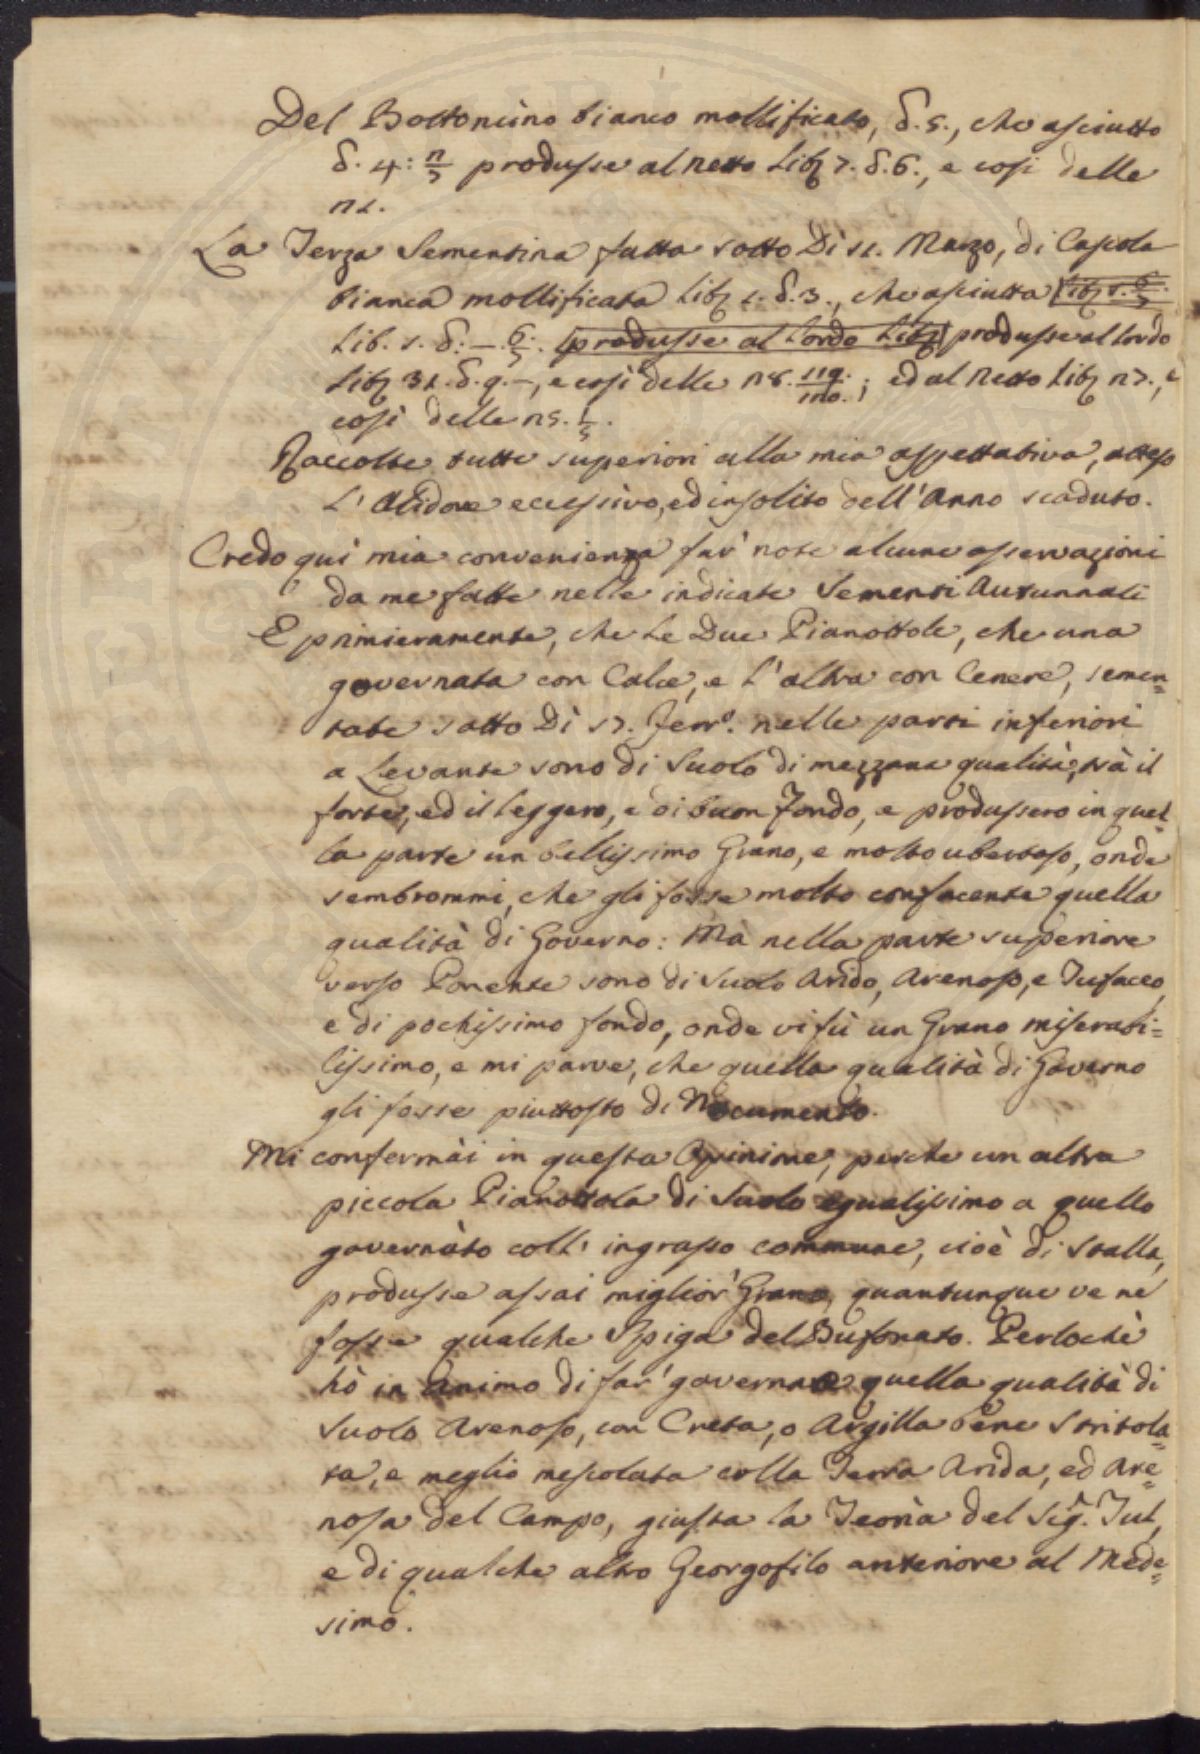 Del Bottoncino bianco mollificato, δ. 5., che asciutto
δ. 4: n/5 produsse al netto Lib. 7. δ. 6., e così delle
n2.
La Terza Sementina fatta sotto Dì 12. Marzo, di Cascola
bianca mollificata Lib. 1. δ. 3., che asciutta
Lib. 1. δ. –. 6/5. produsse al Lordo Lib produsse al lordo
Lib. 32. δ. 9. –, e così delle n8. 119/110.; ed al Netto Lib. n7., e
così delle n5. 1/5.
Raccolte tutte superiori alla mia aspettativa, atteso
L'Alidore eccessivo, ed insolito dell'Anno scaduto.
Credo quì mia convenienza far' note alcune osservazioni
da me fatte nelle indicate Sementi Autunnali
E primieramente, che Le Due Pianottole, che una
governata con Calce, e L'altra con Cenere, semen=
tate sotto Dì 17. Fenn.o nelle parti inferiori
a Levante sono di Suolo di mezzana qualità, trà il
forte, ed il leggero, e di buon fondo, e produssero in quel=
la parte un bellissimo Grano, e molto ubertoso, onde
sembrommi, che gli fosse molto confacente quella
qualità di Governo: Mà nella parte superiore
verso Ponente sono di Suolo Arido, Arenoso, e Tufaceo,
e di pochissimo fondo, onde vi fù un Grano miserabi=
lissimo, e mi parve, che quella qualità di Governo
gli fosse piuttosto di Nocumento.
Mi confermài in questa Opinione, perche un altra
piccola Pianottola di Suolo egualissimo a quello
governàto coll' ingrasso commune, cioè di Stalla,
produsse assai miglior' Grano, quantunque ve ne
fosse qualche Spiga del Bufonato. Perlochè
hò in Animo di far' governare quella qualità di
Suolo Arenoso, con Creta, o Argilla bene Stritola=
ta, e meglio mescolata colla Terra Arida, ed Are=
nosa del Campo, giusta la Teorìa del Sig.r Tul,
e di qualche altro Georgofilo anteriore al Mede=
simo.